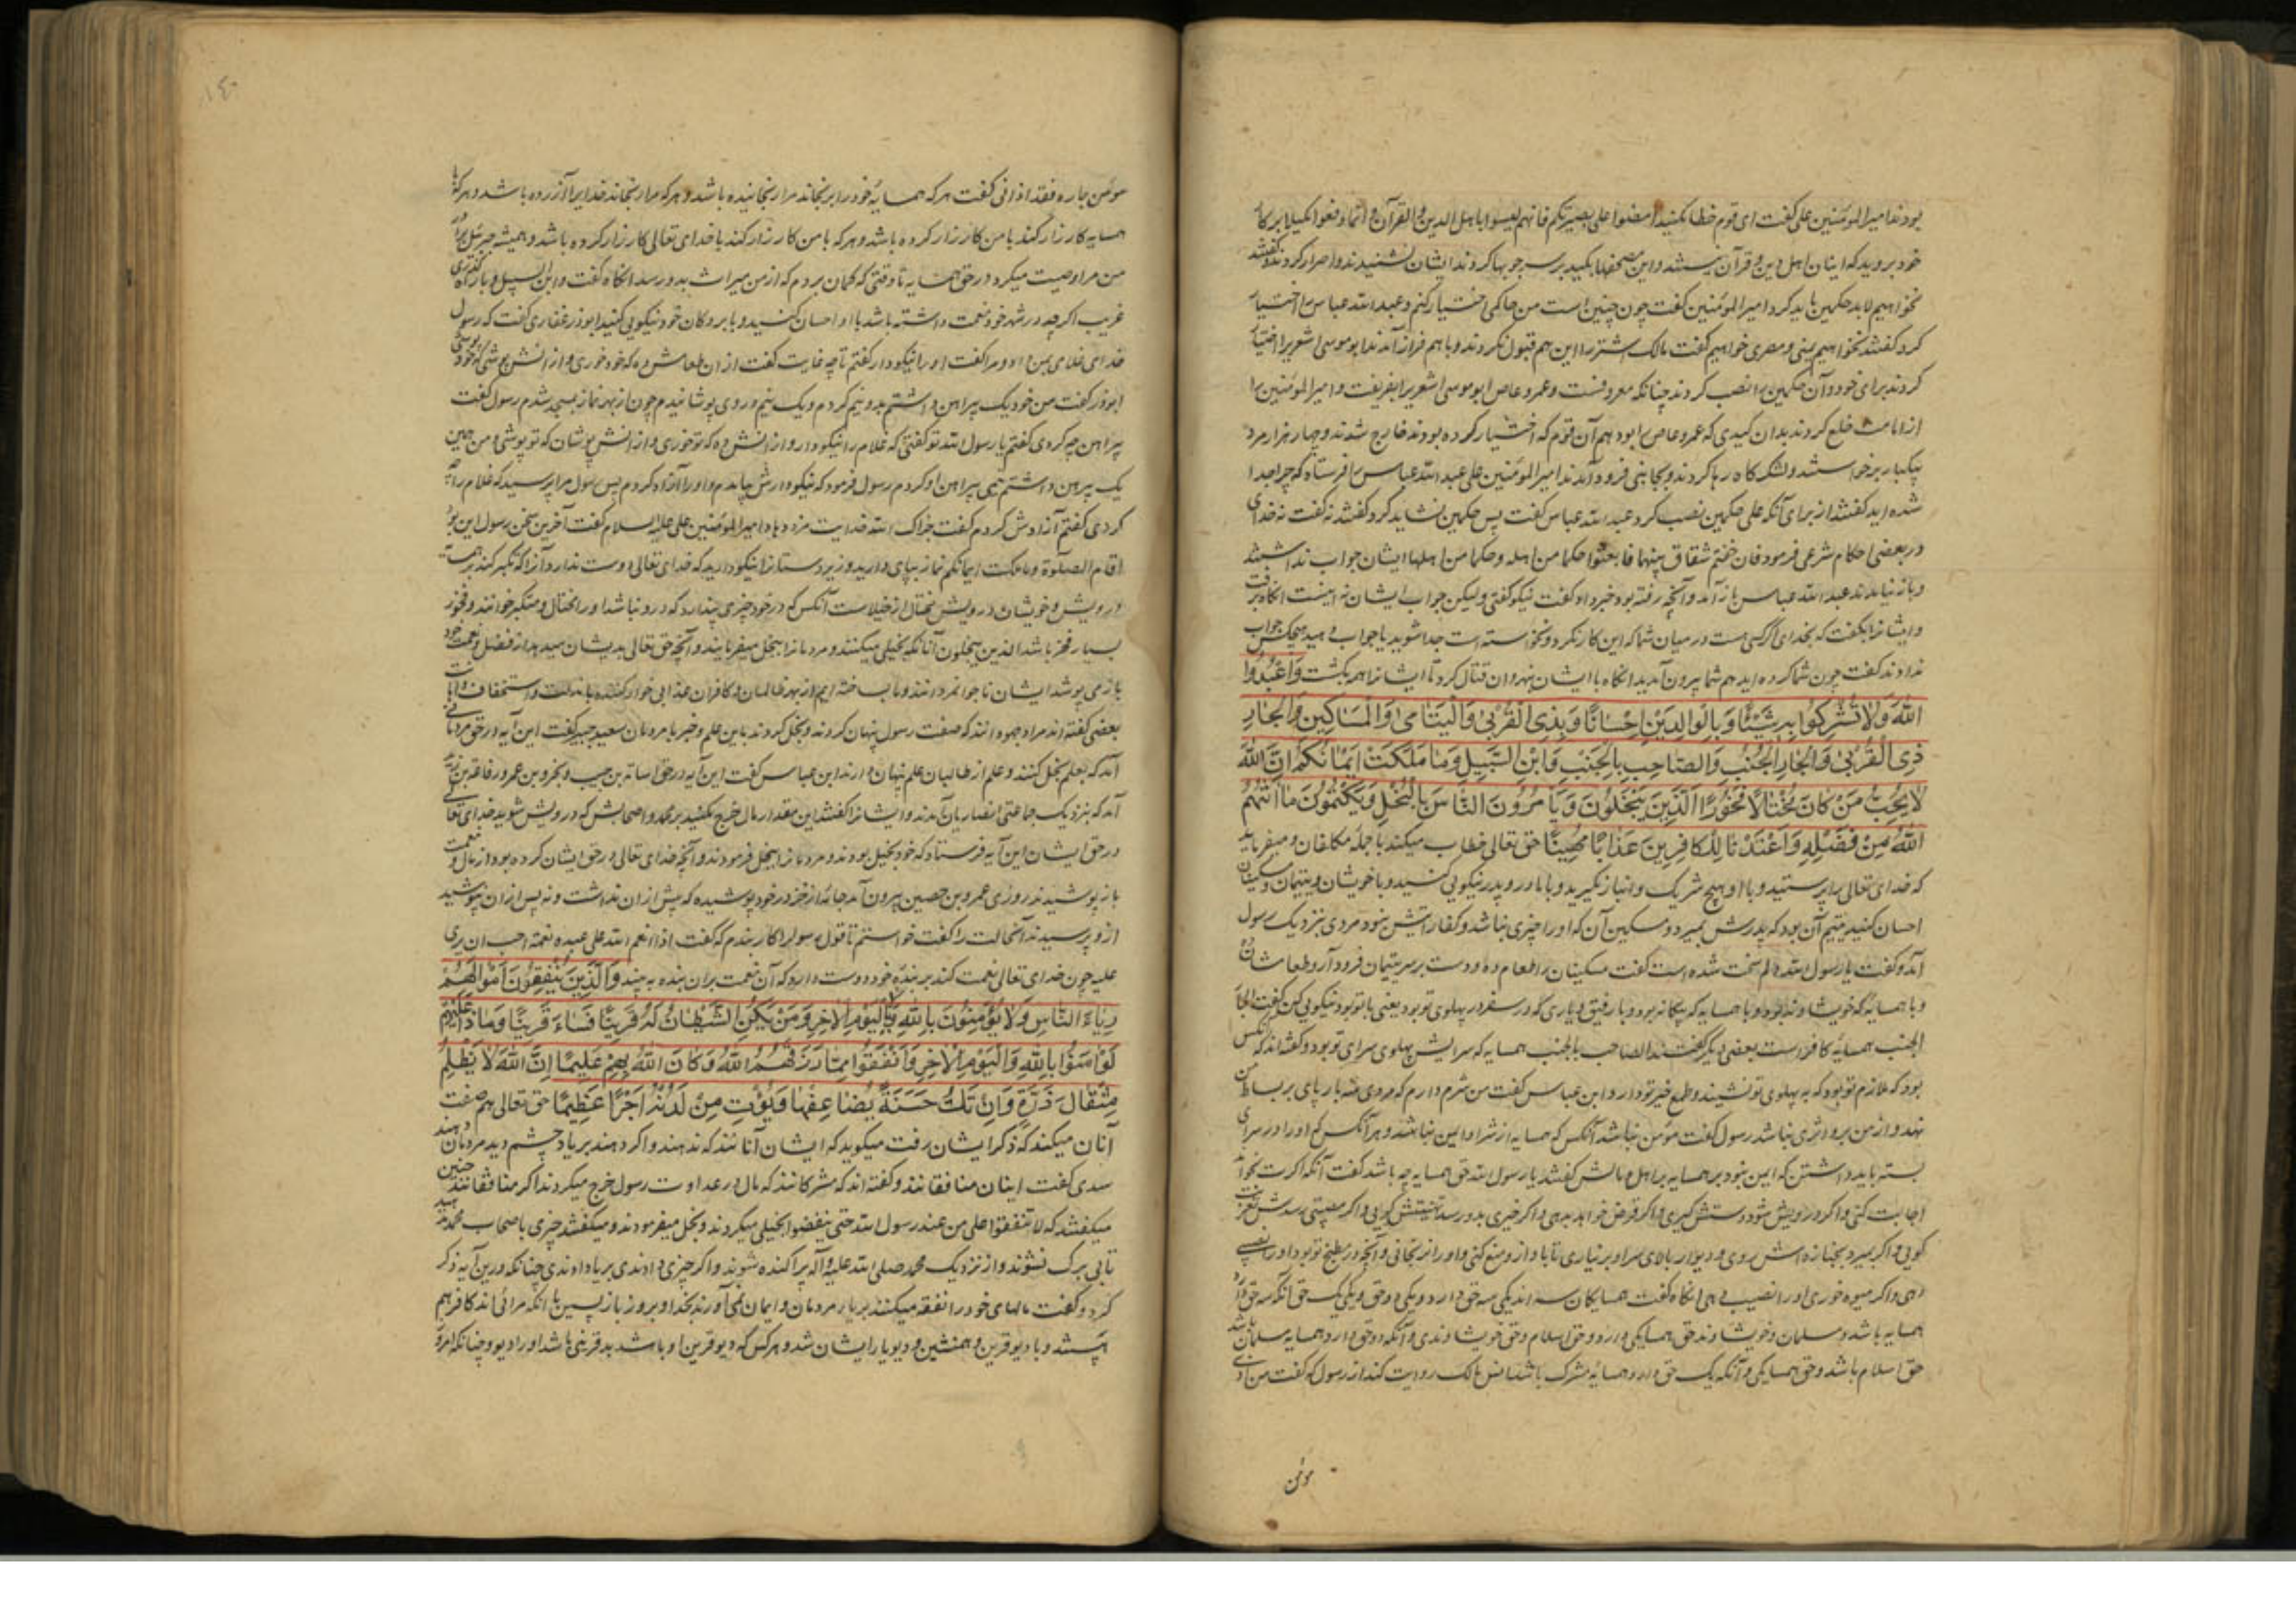 بودند امیرالمؤمنین علی گفت ای قوم خطا مکنید امضوا علی بصیرتکم فانهم لیسوا باهل الدین والقرآن و انما رفعوا
خود بروید که اینان اهل دین و قرآن نیستند و این مصحفها بکید بر سر چوبها کردند ایشان نشنیدند و اصرار کردند و گفتند
نخواهیم لابد حکمین باید کرد امیرالمؤمنین گفت چون چنین است من حاکمی اختیار کنم و عبدالله عباس را اختیار
کرد گفتند نخواهیم یمنی و مصری خواهیم گفت مالک اشتر را این هم قبول نکردند و باهم فراز آمدند ابوموسی اشعریرا اختیار
کردند برای خود و آن حکمین را نصب کردند چنانکه معروفست و عمروعاص ابوموسی اشعریرا بفریفت و امیرالمؤمنین را
از امامت خلع کردند بدان کیدی که عمروعاص را بود هم آن قوم که اختیار کرده بودند خارج شدند و چهار هزار مرد
بیکبار برخواستند و لشکرگاه رها کردند و بجایی فرود آمدند امیرالمؤمنین علی عبدالله عباس را فرستاد که چرا جدا
شده‌اید گفتند از برای آنکه علی حکمین نصب کرد عبدالله عباس گفت پس حکمین نشاید کرد گفتند نه گفت نه خدای
در بعضی احکام شرعی فرمود فان خفتم شقاق بینهما فابعثوا حکما من اهله و حکما من اهلها ایشان جواب نداشتند
و باز نیامدند عبدالله عباس باز آمد و آنچه رفته بود خبر داد گفت نیکو گفتی ولیکن جواب ایشان نه اینست آنگاه برفت
و ایشانرا بگفت که بخدای اگر کسی هست در میان شما که این کار نکرد و نخواسته است جدا شوید یا جواب دهید هیچکس جواب
ندادند گفت چون شما کرده‌اید هم شما بیرون آمدید آنگاه با ایشان بنهروان قتال کرد تا ایشانرا همه بکشت وَاعْبُدُوا
اللهَ وَلَا تُشْرِكُوا بِهِ شَيْئًا وَبِالْوَالِدَيْنِ اِحْسَانًا وَبِذِى الْقُرْبىٰ وَالْيَتَامىٰ وَالْمَسَاكِينِ وَالْجَارِ
ذِى الْقُرْبىٰ وَالْجَارِ الْجُنُبِ وَالصَّاحِبِ بِالْجَنْبِ وَابْنِ السَّبِيلِ وَمَا مَلَكَتْ اَيْمَانُكُمْ اِنَّ اللهَ
لَا يُحِبُّ مَنْ كَانَ مُخْتَالًا فَخُورًا الَّذِينَ يَبْخَلُونَ وَيَأْمُرُونَ النَّاسَ بِالْبُخْلِ وَيَكْتُمُونَ مَا اٰتٰيهُمُ
اللهُ مِنْ فَضْلِهِ وَاَعْتَدْنَا لِلْكَافِرِينَ عَذَابًا مُهِينًا حق تعالی خطاب میکند با جمله مکلفان و میفرماید
که خدای تعالی را پرستید و با او هیچ شریک و انباز مگیرید و با مادر و پدر نیکویی کنید و با خویشان و یتیمان و مسکینان
احسان کنید یتیم آن بود که پدرش بمیرد و مسکین آن که او را چیزی نباشد و کفاء تیش نبود مردی بنزدیک رسول
آمد و گفت یا رسول الله دلم سخت شده است گفت مسکینان را طعام ده و دست بر سر یتیمان فرود آر و طعامشان
و با همسایه که خویشاوند بود و با همسایه که بیگانه بود و با رفیق و یاری که در سفر در پهلوی تو بود یعنی با تو بود نیکویی کن
الجنب همسایه کافر است بعضی دیگر گفتند الصاحب بالجنب همسایه که سرایش پهلوی سرای تو بود و گفته‌اند
بود که ملازم تو بود که به پهلوی تو نشیند و طمع خیر تو دارد و ابن عباس گفت من شرم دارم که مردی سه بار پای بر بساط من
نهد و از من برو اثری نباشد رسول گفت مؤمن نباشد آنکس که همسایه از شر او ایمن نباشد و هر آنکس که او را در سرای
بسته باید داشتن که ایمن نبود بر همسایه بر اهل و مالش گفتند یا رسول الله حق همسایه چه باشد گفت آنکه اگرت بخواند
اجابت کنی و اگر درویش شود دستش گیری و اگر قرض خواهد بدهی و اگر خیری بدو رسد تهنیتش گویی و اگر مصیبتی رسدش
گویی و اگر بمیرد بجنازه‌اش روی و دیوار بالای سرای او برنیاری تا باد از و منع کنی و او را نرنجانی و آنچه در مطبخ تو بود او را
دهی و اگر میوه خوری او را نصیب دهی آنگاه گفت همسایگان سه‌اند یکی سه حق دارد و یکی دو حق و یکی یک حق آنکه سه حق دارد
همسایه باشد و مسلمان و خویشاوند حق همسایگی دارد و حق اسلام و حق خویشاوندی و آنکه دو حق دارد همسایه مسلمان باشد
حق اسلام باشد و حق همسایگی و آنکه یک حق دارد همسایه مشرک باشد انس مالک روایت کند از رسول که گفت من اذی
مؤمن
مؤمن جاره فقد اذانی گفت هرکه همسایه خود را برنجاند مرا رنجانیده باشد و هرکه مرا رنجاند خدایرا آزرده باشد و هرکه با
همسایه کارزار کند با من کارزار کرده باشد و هرکه با من کارزار کند با خدای تعالی کارزار کرده باشد و همیشه جبرئیل برادر
من مرا وصیت میکرد در حق همسایه تا وقتی که گمان بردم که از من میراث بدو رسد آنگاه گفت وابن السبیل و با راه‌گذری
غریب اگرچه در شهر خود نعمت داشته باشد با او احسان کنید و با بردگان خود نیکویی کنید ابوذر غفاری گفت که رسول
خدای غلامی بمن داد و مرا گفت او را نیکو دار گفتم تا چه غایت گفت از ان طعامش ده که خود خوری و از انش پوشی که خود پوشی
ابوذر گفت من خود یک پیراهن داشتم بدو نیم کردم و یک نیم در وی پوشانیدم چون از بهر نماز بمسجد شدم رسول گفت
پیراهن چه کردی گفتم یا رسول الله تو گفتی که غلام را نیکو دار و از انش ده که تو خوری و از انش پوشان که تو پوشی و من همین
یک پیرهن داشتم نیمی پیراهن او کردم رسول فرمود که نیکو دارش و او را آزاد کردم پس رسول مرا پرسید که غلام را چه
کردی گفتم آزادش کردم گفت جزاک الله خدایت مزد دهاد امیرالمؤمنین علی علیه السلام گفت آخرین سخن رسول این بود
اقام الصلوة و ماملکت ایمانکم نماز بپای دارید و زیردستانرا نیکو دارید که خدای تعالی دوست ندارد آنرا که تکبر کند بر همسایه
درویش و خویشان درویش مختال از خیلاست آنکس که در خود چیزی پندارد که درو نباشد او را مختال و متکبر خوانند و فخور
بسیار فخر باشد الذین یبخلون آنانکه بخیلی میکنند و مردمانرا ببخل میفرمایند و آنچه حق تعالی بدیشان میدهد از فضل و نعمت خود
باز می‌پوشد ایشان ناجوانمردانند و ما بساخته‌ایم از بهر ظالمان و کافران عذابی خوارکننده با مذلت و استخفاف و اهانت
بعضی گفته‌اند مراد جهودانند که صفت رسول پنهان کردند و بخل کردند باین علم و خبر با مردمان سعید جبیر گفت این آیه در حق مردمانی
آمد که بعلم بخل کنند و علم از طالبان علم پنهان دارند ابن عباس گفت این آیه در حق اسامة بن حبیب و بحر بن عمرو رفاعه بن زید
آمد که بنزدیک جماعتی انصاریان آمدند و ایشانرا گفتند این مقدار مال خرج مکنید بر محمد و اصحابش که درویش شوید خدای تعالی
در حق ایشان این آیه فرستاد که خود بخیل بودند و مردمانرا ببخل فرمودند و آنچه خدای تعالی در حق ایشان کرده بود از مال و نعمت
باز پوشیدند روزی عمرو بن حصین بیرون آمد جامه از خز در خود پوشیده که پیش از ان نداشت و نه پس از ان پوشید
ازو پرسیدند آنحالت را گفت خواستم تا قول رسولرا کار بندم که گفت اذا انعم الله علی عبده نعمة احب ان یری
علیه چون خدای تعالی نعمت کند بر بنده خود دوست دارد که آن نعمت بران بنده ببیند وَالَّذِينَ يُنْفِقُونَ اَمْوَالَهُمْ
رِئَاءَ النَّاسِ وَلَا يُؤْمِنُونَ بِاللهِ وَلَا بِالْيَوْمِ الْاٰخِرِ وَمَنْ يَكُنِ الشَّيْطَانُ لَهُ قَرِينًا فَسَاءَ قَرِينًا وَمَاذَا عَلَيْهِمْ
لَوْ اٰمَنُوا بِاللهِ وَالْيَوْمِ الْاٰخِرِ وَاَنْفَقُوا مِمَّا رَزَقَهُمُ اللهُ وَكَانَ اللهُ بِهِمْ عَلِيمًا اِنَّ اللهَ لَا يَظْلِمُ
مِثْقَالَ ذَرَّةٍ وَاِنْ تَكُ حَسَنَةً يُضَاعِفْهَا وَيُؤْتِ مِنْ لَدُنْهُ اَجْرًا عَظِيمًا حق تعالی هم صفت
آنان میکند که ذکر ایشان رفت میگوید که ایشان آنانند که ندهند و اگر دهند بریا و چشم دید مردمان دهند
سدی گفت اینان منافقانند و گفته‌اند که مشرکانند که مال در عداوت رسول خرج میکردند اگر منافقانند چنین
میگفتند که لاتنفقوا علی من عند رسول الله حتی ینفضوا بخیلی میکردند و بخل میفرمودند و میگفتند چیزی باصحاب محمد مدهید
تا بی برگ نشوند و از نزدیک محمد صلی الله علیه وآله پراکنده شوند و اگر چیزی دادندی بریا دادندی چنانکه درین آیه ذکر
کرد و گفت مالهای خود را نفقه میکنند بریاء مردمان و ایمان نمی‌آورند بخدا و بروز بازپسین با انکه مرائی‌اند کافر هم
هستند و با دیو قرین و همنشین و دیو یار ایشان شد و هرکس که دیو قرین او باشد بد قرینی باشد او را دیو و چنانکه امروز